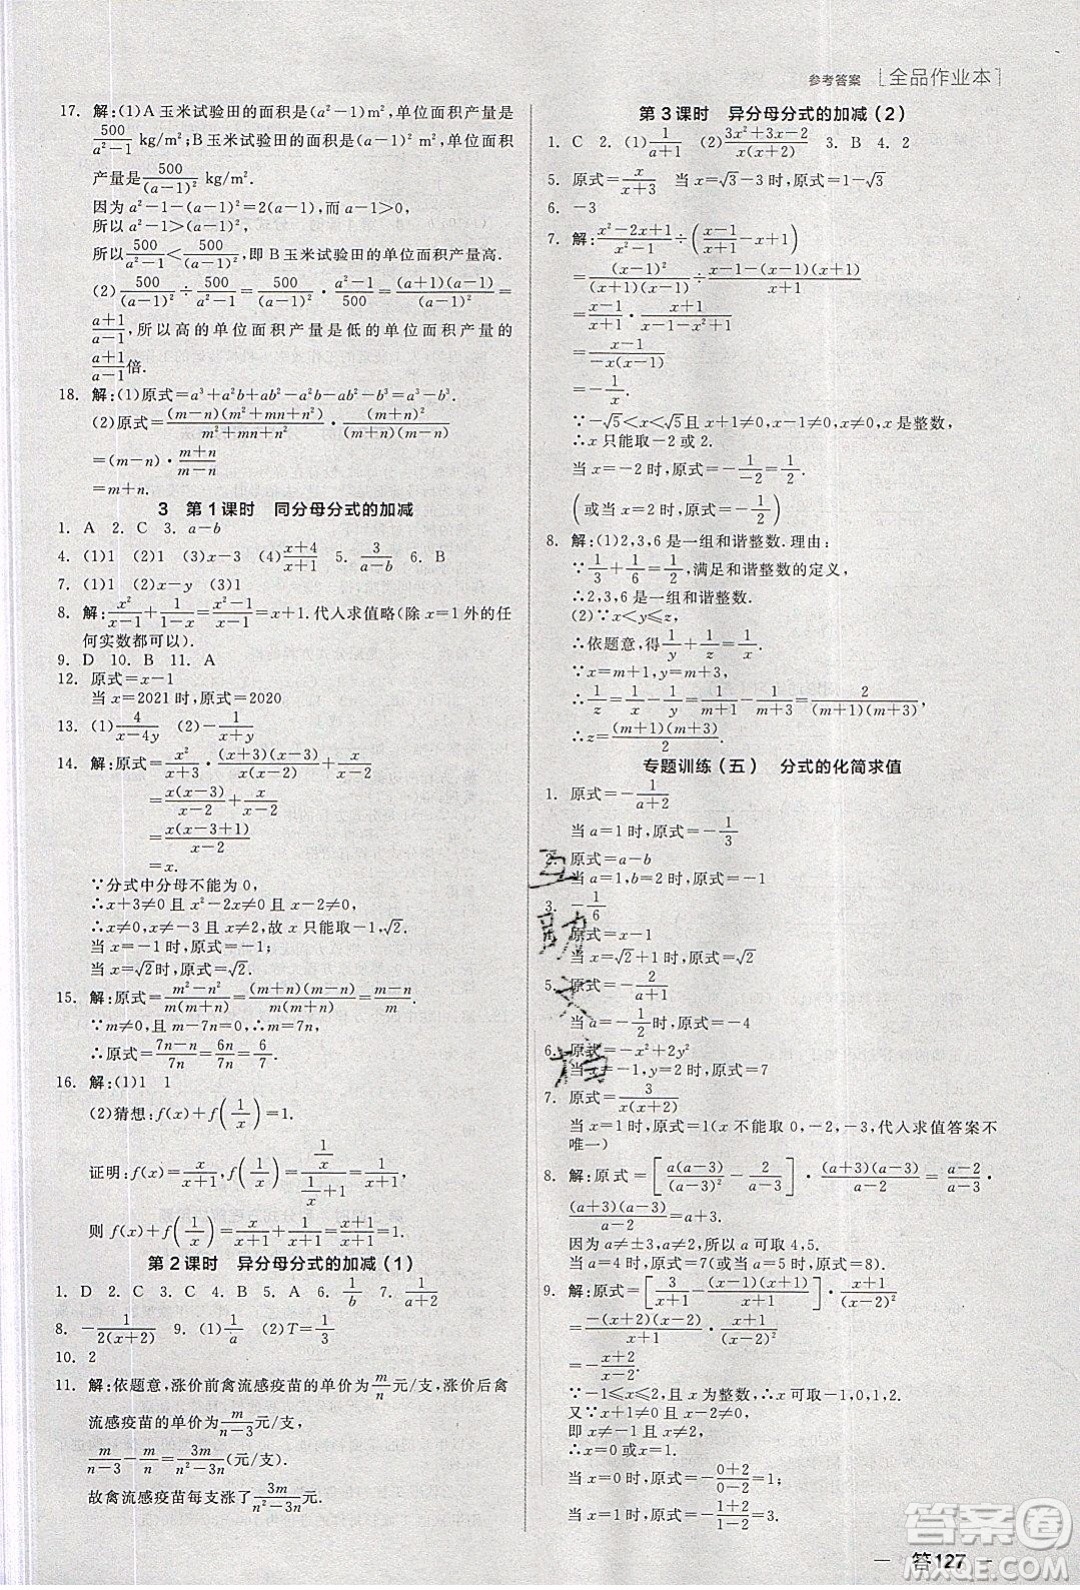 参考答案 [全品作业本]
17. 解:(1)A玉米试验田的面积是(a²-1)m²,单位面积产量是
500/(a²-1) kg/m²;B玉米试验田的面积是(a-1)²m²,单位面积
产量是500/(a-1)² kg/m².
因为a²-1-(a-1)²=2(a-1),a-1>0,
所以a²-1>(a-1)².
所以500/(a²-1)<500/(a-1)²,即B玉米试验田的单位面积产量高.
(2)500/(a-1)²÷500/(a²-1)=500/(a-1)²·(a²-1)/500=(a+1)(a-1)/(a-1)²=
(a+1)/(a-1),所以高的单位面积产量是低的单位面积产量的
(a+1)/(a-1)倍.
18. 解:(1)原式=a³+a²b+ab²-a²b-ab²-b³=a³-b³.
(2)原式=(m-n)(m²+mn+n²)/(m²+mn+n²)·(m+n)(m-n)/(m-n)²
=(m-n)·(m+n)/(m-n)
=m+n.
3 第1课时 同分母分式的加减
1. A 2. C 3. a-b
4. (1)1 (2)1 (3)x-3 (4)(x+4)/(x+1) 5. 3/(a-b) 6. B
7. (1)1 (2)x-y (3)1
8. 解:x²/(x-1)+1/(1-x)=(x²-1)/(x-1)=x+1.代入求值略(除x=1外的任
何实数都可以).
9. D 10. B 11. A
12. 原式=x-1
当x=2021时,原式=2020
13. (1)4/(x-4y) (2)-1/(x+y)
14. 解:原式=x²/(x+3)·(x+3)(x-3)/(x(x-2))+x/(x-2)
=x(x-3)/(x-2)+x/(x-2)
=x(x-3+1)/(x-2)
=x.
∵分式中分母不能为0,
∴x+3≠0且x(x-2)≠0,
∴x≠0且x≠2且x≠-3,故x只能取1或√2.
当x=1时,原式=1.
当x=√2时,原式=√2.
15. 解:原式=(m²-n²)/(m(m+n))=(m+n)(m-n)/(m(m+n))=(m-n)/m.
∵m≠0,且m-7n=0,∴m=7n,
∴原式=(7n-n)/7n=6n/7n=6/7.
16. 解:(1)1 1
(2)猜想:f(x)+f(1/x)=1.
证明:f(x)=x/(x+1),f(1/x)=(1/x)/(1/x+1)=1/(x+1),
则f(x)+f(1/x)=x/(x+1)+1/(x+1)=(x+1)/(x+1)=1.
第2课时 异分母分式的加减(1)
1. D 2. D 3. C 4. B 5. A 6. 1/b 7. 1/(a+2)
8. -1/(2(x+2)) 9. (1)1/a (2)T=1/3
10. 2
11. 解:依题意,涨价前禽流感疫苗的单价为m/n元/支,涨价后禽
流感疫苗的单价为m/(n-3)元/支,
m/(n-3)-m/n=3m/(n(n-3))=3m/(n²-3n)(元/支).
故禽流感疫苗每支涨了3m/(n²-3n)元.
第3课时 异分母分式的加减(2)
1. C 2. (1)1/(a+1) (2)(3x²+3x-2)/(x(x+2)) 3. B 4. 2
5. 原式=x/(x+3) 当x=√3-3时,原式=1-√3
6. -3
7. 解:(x²-2x+1)/(x²-1)÷((x-1)/(x+1)-x+1)
=(x-1)(x-1)/((x+1)(x-1))÷(x-1-(x-1)(x+1))/(x+1)
=(x-1)/(x+1)·(x+1)/(x-1-x²+1)
=(x-1)/(-x(x-1))
=-1/x.
∵-√5<x<√5且x+1≠0,x-1≠0,x≠0,x是整数,
∴x只能取-2或2.
当x=-2时,原式=-1/(-2)=1/2.
(或当x=2时,原式=-1/2)
8. 解:(1)2,3,6是一组和谐整数.理由:
∵1/3+1/6=1/2,满足和谐整数的定义,
∴2,3,6是一组和谐整数.
(2)∵x<y≤z,
∴依题意,得1/y+1/z=1/x.
∵x=m+1,y=m+3,
∴1/z=1/x-1/y=1/(m+1)-1/(m+3)=2/((m+1)(m+3)),
∴z=(m+1)(m+3)/2.
专题训练(五) 分式的化简求值
1. 原式=-1/(a+2)
当a=1时,原式=-1/3
2. 原式=a-b
当a=1,b=2时,原式=-1
3. -1/6
原式=x-1
当x=√2+1时,原式=√2
5. 原式=a/(a+1)
当a=-4/5时,原式=-4
6. 原式=-x²+2y²
当x=-1,y=1时,原式=1
7. 原式=3/(x(x+2))
当x=1时,原式=1(x不能取0,-2,-3,代入求值答案不
唯一)
8. 解:原式=[a(a-3)/(a-3)²-2/(a-3)]·(a+3)(a-3)/(a-2)=(a-2)/(a-3)·
(a+3)(a-3)/(a-2)=a+3.
因为a≠-3,2,3,所以a可取4,5.
当a=4时,原式=7(或当a=5时,原式=8).
9. 解:原式=[3/(x+1)-(x+1)(x-1)/(x+1)]·(x+1)/(x-2)²
=-(x+2)(x-2)/(x+1)·(x+1)/(x-2)²
=-(x+2)/(x-2).
∵-1≤x≤2,且x为整数,∴x可取-1,0,1,2.
又∵x+1≠0且x-2≠0,
即x≠-1且x≠2,
∴x=0或x=1.
当x=0时,原式=-(0+2)/(0-2)=1.
当x=1时,原式=-(1+2)/(1-2)=3.
互助文档
答案圈
— 答127 —